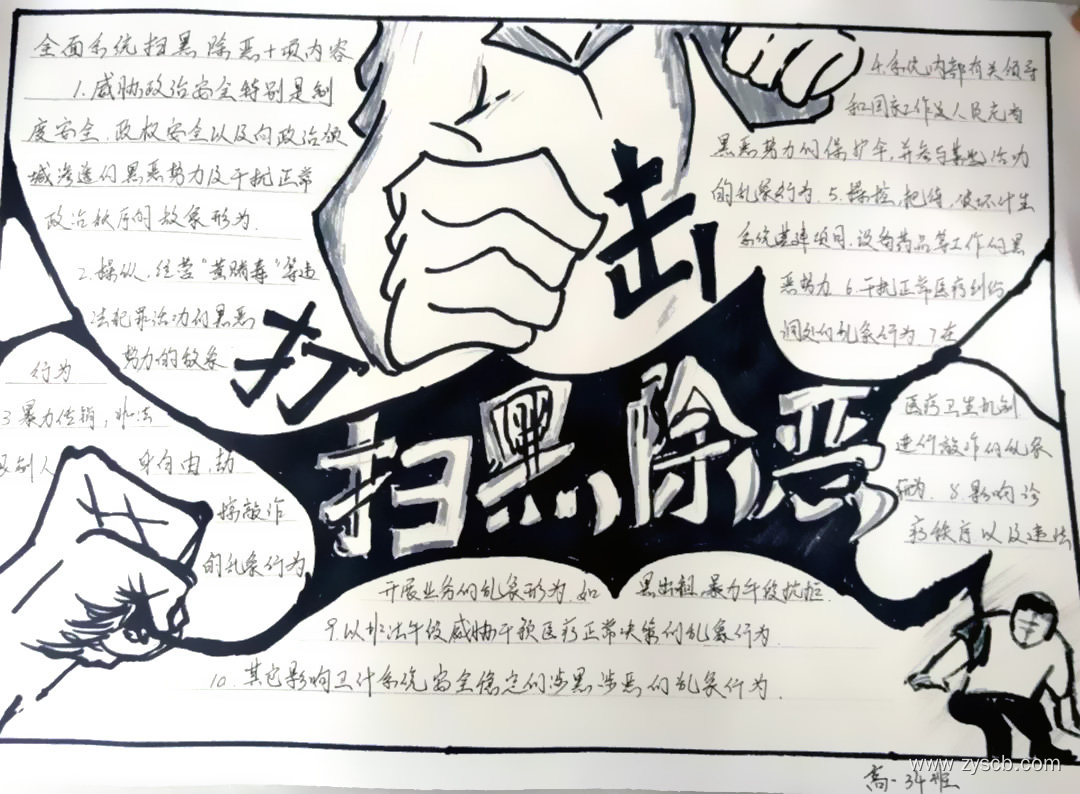 全面系统扫黑除恶十项内容
1.威胁政治安全特别是制
度安全、政权安全以及向政治领
域渗透的黑恶势力及干扰正常
政治秩序的敌象形为.
2.操纵、经营“黄赌毒”等违
法犯罪活动的黑恶
势力的敌象
行为
3 暴力传销,非法
限制人 身自由,劫
摛敲诈
的乱象行为
打击
扫黑除恶
4.系统内部有关领导
和国家工作人员充当
黑恶势力的保护伞,并参与其违活动
的乱象行为.5.操控、把持、破坏计生
系统基建项目、设备药品等工作的黑
恶势力 6.干扰正常医疗纠纷
调处的乱象行为 7.在
医疗卫生机制
进行敲诈的乱象
行为.8.影响诊
疗秩序以及违法
开展业务的乱象形为.如 黑出租.暴力手段抗拒.
9.以非法手段威胁干预医疗正常决策的乱象行为.
10.其它影响卫计系统安全稳定的涉黑涉恶的乱象行为.
高一34班
www.zyscb.com